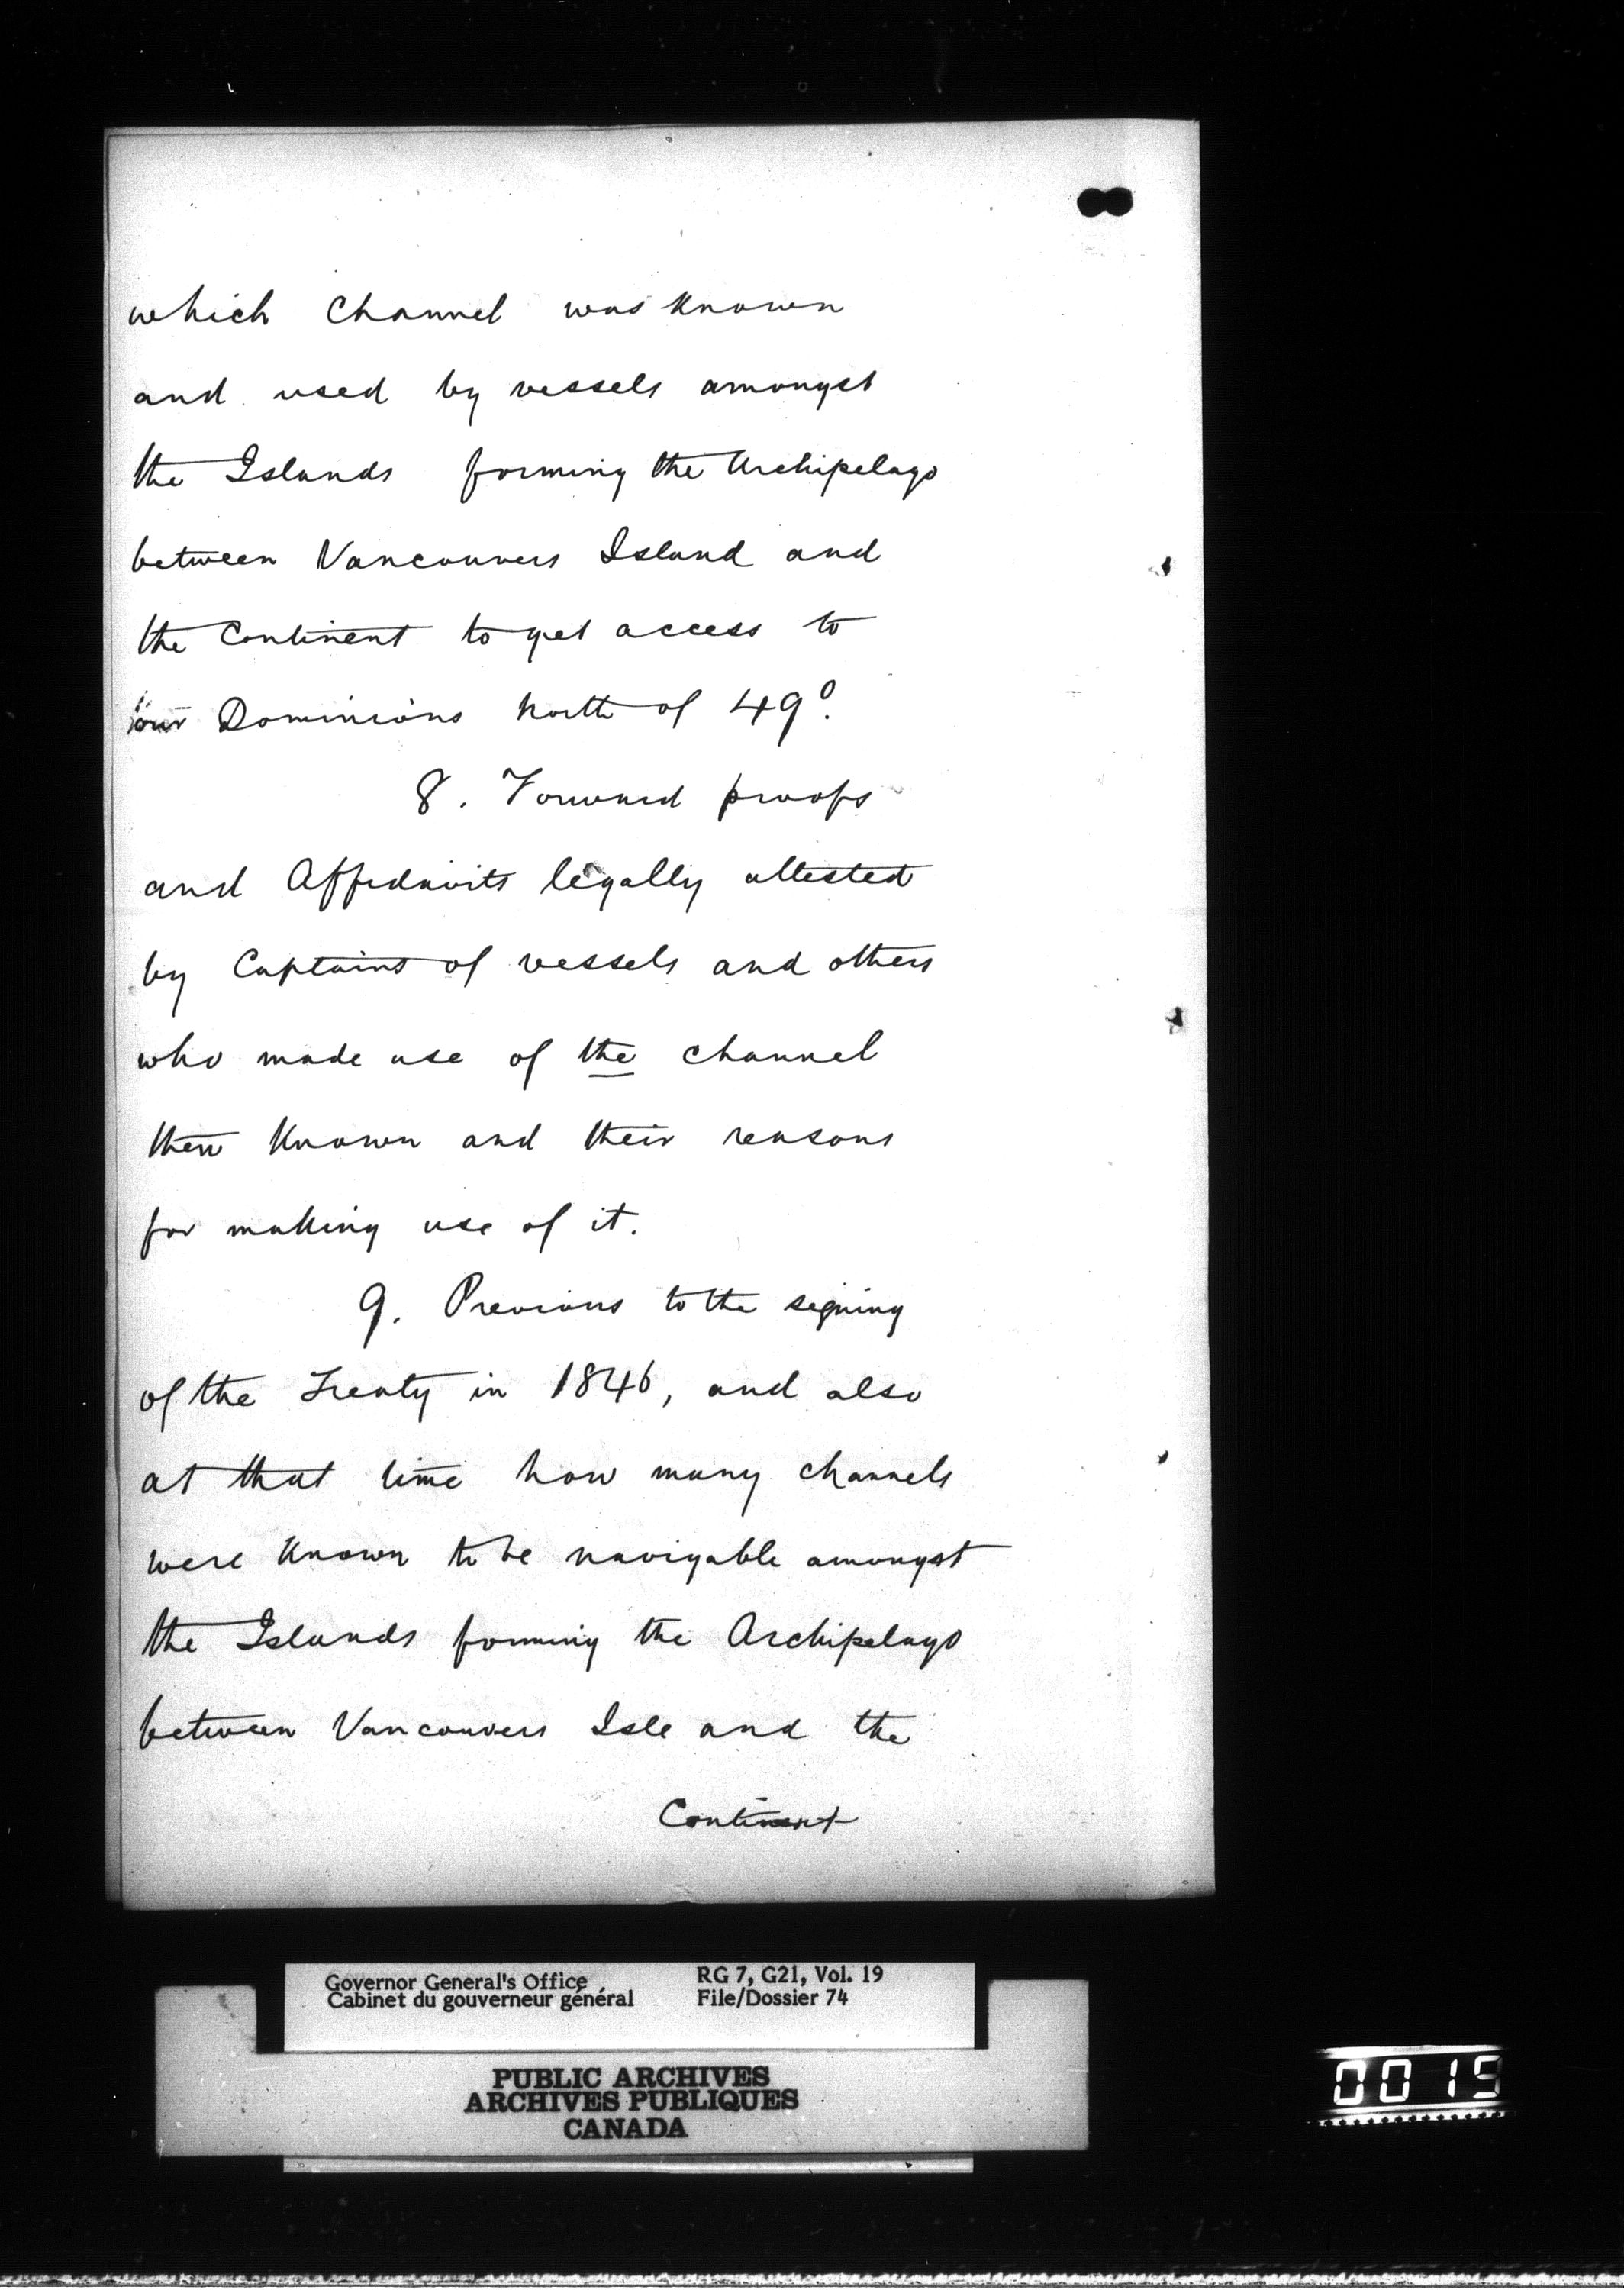 which Channel was known
and used by vessels amongst
the Islands forming the Archipelago
between Vancouvers Island and
the Continent to get access to
our Dominions North of 49°.
8. Forward proofs
and Affidavits legally attested
by Captains of vessels and others
who made use of the channel
then known and their reasons
for making use of it.
9. Previous to the signing
of the Treaty in 1846, and also
at that time how many channels
were known to be navigable amongst
the Islands forming the Archipelago
between Vancouvers Isle and the
Continent
Governor General's Office
Cabinet du gouverneur général
RG 7, G21, Vol. 19
File/Dossier 74
PUBLIC ARCHIVES
ARCHIVES PUBLIQUES
CANADA
0015